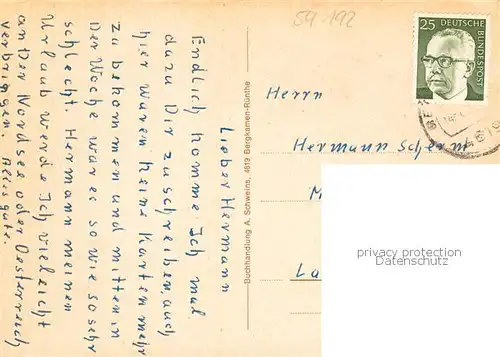 59 192
25 DEUTSCHE
BUNDESPOST
Lieber Hermann
Endlich komme Ich mal
dazu Dir zu schreiben, auch
hier waren keine Karten mehr
zu bekommen und mitten in
der Woche war es so wie so sehr
schlecht. Hermann meinen
Urlaub werde Ich vielleicht
an der Nordsee oder Oesterreich
verbringen. Alles gute.
Buchhandlung A. Schweins, 4619 Bergkamen-Rünthe
Herrn
Hermann Scherm
M
La
privacy protection
Datenschutz